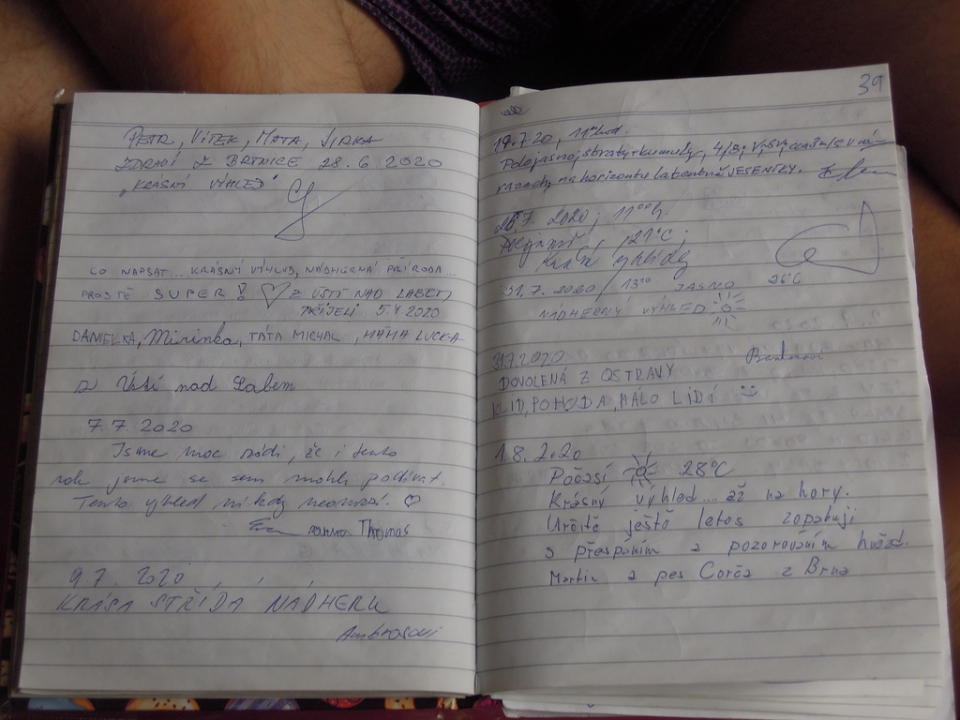 PETR, VÍTEK, MATA, JIRKA
ZDRAVÍ Z BRTNICE 28.6.2020
"KRÁSNÍ VÝHLED"
CO NAPSAT... KRÁSNÝ VÝHLED, NÁDHERNÁ PŘÍRODA...
PROSTĚ SUPER! Z ÚSTÍ NAD LABEM,
PŘIJELI 5.7.2020
DANIELKA, Mirinka, TÁTA MICHAL, MÁMA LUCKA
Z Ústí nad Labem
7.7.2020
Jsme moc rádi, že i tento
rok jsme se sem mohli podívat.
Tento výhled nikdy neomrzí.
Thomas
9.7.2020
KRÁSA STŘÍDÁ NÁDHERU
Ambrosovi
39
19.7.20, 11 hod.
Polojasno, kumuly, 4/8,
na horizontu JESENÍKY.
7.2020, 11⁰⁰h.
21°C,
31.7.2020 / 13⁰⁰ JASNO 26°C
NÁDHERNÝ VÝHLED
31.7.2020
DOVOLENÁ Z OSTRAVY
KLID, POHODA, MÁLO LIDÍ
1.8.2020
Počasí 28°C
Krásný výhled... až na hory.
Určitě ještě letos zopakuji
s přespáním a pozorováním hvězd.
Martin a pes Corča z Brna